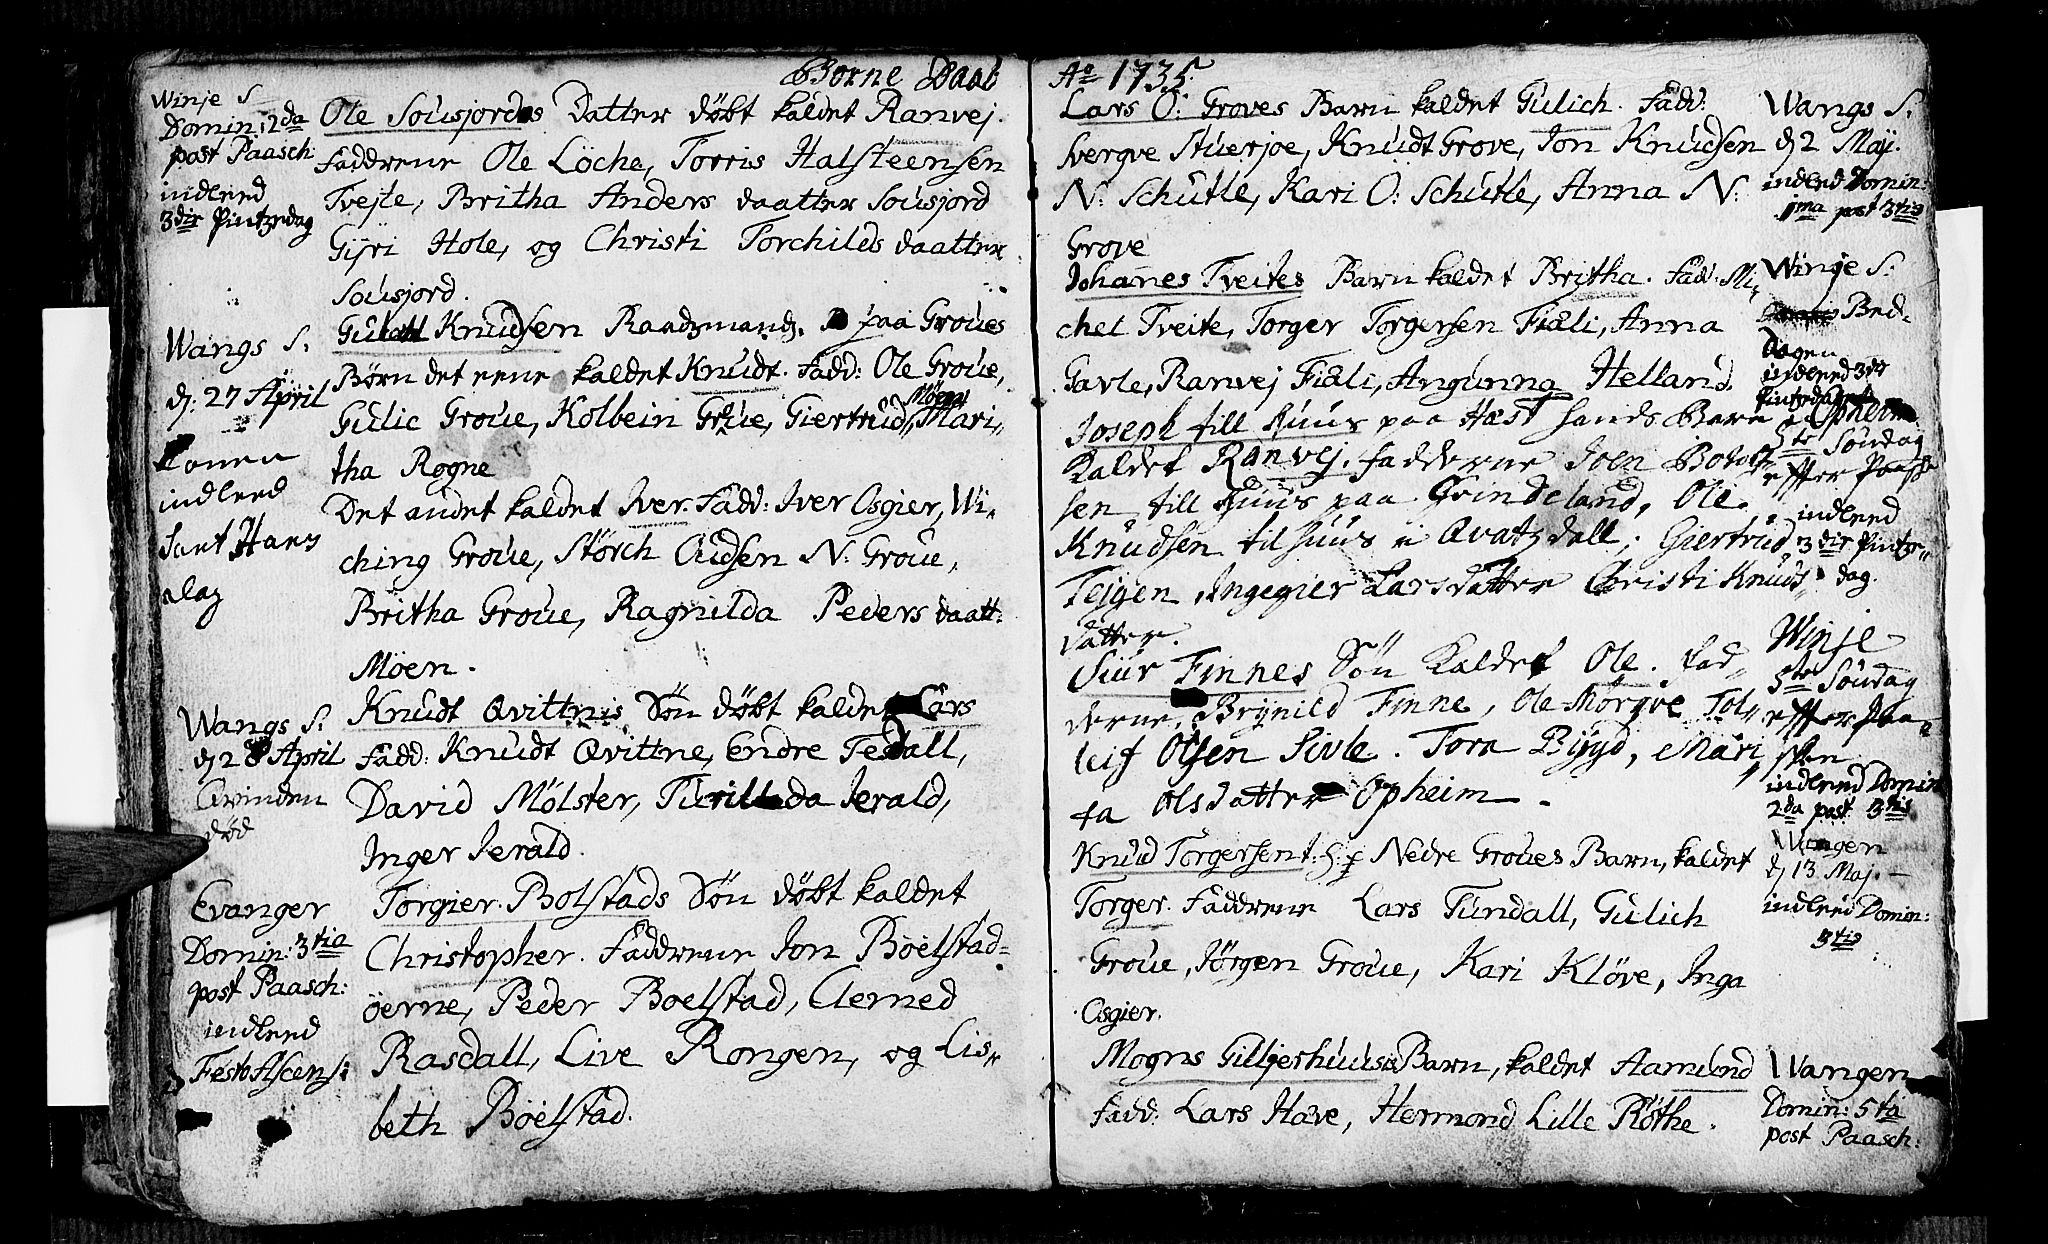 Borne Daab
Winje S
Domin: 2da
post Paasch:
indleed
3die Pintzedag
Ole Sousjordes Datter döbt kaldet Ranvej.
Faddrene Ole Löche, Torris Halsteensen
Tvejte, Britha Anders daatter Sousjord
Gÿri Hole, og Christi Torchilds daatter
Sousjord.
Wangs S:
dj: 27 April
Konen
indleed
Sant Hans
dag
Knudsen Raadzmands. paa Groues
Børn det eene kaldet Knudt. Fadd: Ole Groue,
Gulic Groue, Kolbein Groue, Giertrud Möen, Mari„
tha Rogne
Det andet kaldet Iver. Fadd: Iver Osgier, Wi„
ching Groue, Störch Oudsen N: Groue,
Britha Groue, Ragnilda Peders daatt:
Möen.
Wangs S:
dj 28 April
Qvinden
død
Knudt Qvittnis Søn døbt kaldet Lars
Fadd: Knudt Qvittne, Endre Tedall,
David Mølster, Turillda Jerald,
Inger Jerald.
Evanger
Domin: 3tia
post Paasch:
indleed
Festo Ascens:
Torgier Bolstads Søn döbt kaldet
Christopher. Faddrene Jon Böelstad=
öerne, Peder Boelstad, Clemed
Rasdall, Live Rongen, og Lis„
beth Böelstad.
Ao 1735.
Lars O: Groves Barn kaldet Gulich. Fadd:
Svergve Stuerjoe, Knudt Grove, Jon Knudsen
N: Schutle, Kari O: Schutle, Anna N:
Grove
Wangs S:
dj 2 Maÿ.
indleed Domin:
1ma post 3tis
Johanes Tveites Barn kaldet Britha. Fadd: Mi„
chel Tveite, Torger Torgersen Fiæli, Anna
Gavle, Ranvej Fiæli, Angunna Helland.
Winje S:
Bed-
Dagen
indleed 3die
Pintzedag
Joseph till Huus paa Hæst hands Barn
Kaldet Ranvej. fadderne Joen Botolf„
sen till Huus paa Grindeland, Ole
Knudsen til huus i Qvatzdall, Giertrud
Tejgen, Ingegier Larsdatter Christi Knuds„
datter.
Opheim
5te Söndag
effter Paasche
indleed
3die Pintze„
dag.
Siur Finnes Sön Kaldet Ole. fad„
derne, Brÿnild Finne, Ole Mörqve Tol„
leif Olsen Sivle. Tora Bÿgd, Mari„
ta Olsdatter Opheim.
Winje
5te Söndag
effter Paa=
schen
indleed Domin
2da post 3tis
Knud Torgersen t: h: p Nedre Groues Barn, kaldet
Torger. Faddrene Lars Tundall, Gulich
Groue, Jörgen Groue, Kari Klöve, Inga
Osgier.
Wangen
dj 13 Maj.
indleed Domin:
3tis
Mogns Gilljerhuus Barn, kaldet Aamund
Fadd: Lars Hæve, Hermond Lille Röthe.
Wangen
Domin: 5ta
post Paasch: